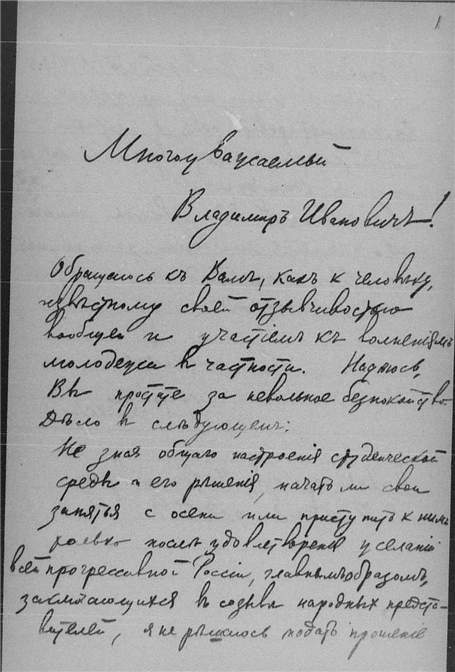 1
Многоуважаемый
Владимиръ Ивановичъ!
Обращаюсь къ Вамъ, какъ к человѣку,
извѣстному своей отзывчивостью
вообще и участіемъ къ волненіямъ
молодежи в частности. Надѣюсь,
Вы простите за невольное безпокойство.
Дѣло в слѣдующемъ:
Не зная общаго настроенія студенческой
среды и его рѣшенія, начать ли свои
занятья с осени или приступить к ними
только послѣ удовлетворенія желаній
всей прогрессивной Россіи, главнымъ образомъ,
заключающихся въ созывѣ народныхъ предста-
вителей, я не рѣшаюсь подать прошеніе